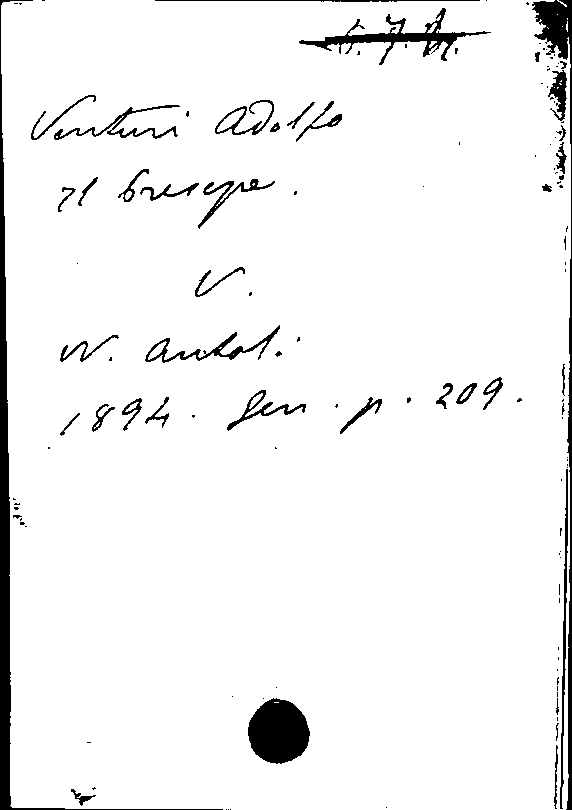 Venturi Adolfo
Il Presepe.
V.
N. Antol.
1894. Gen. p. 209.